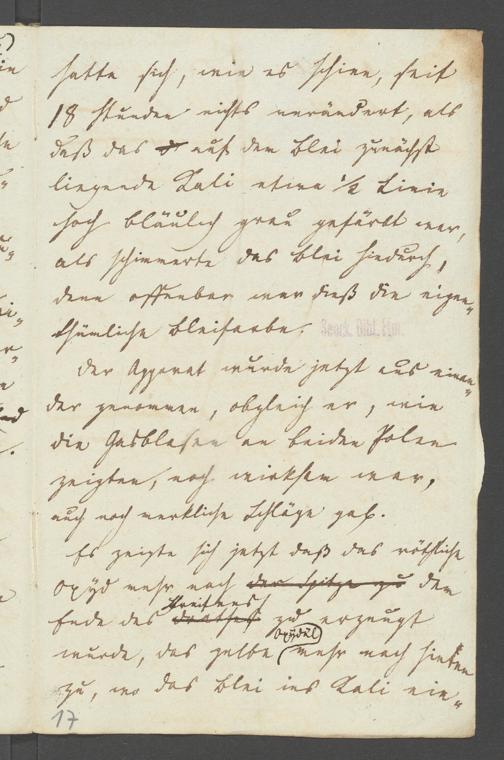 hatte sich, wie es schien, seit
18 Stunden nichts verändert, als
daß das auf dem Blei zunächst
liegende Kali etwa ½ Linie
hoch bläulich grau gefärbt war,
als schimmerte das Blei hindurch,
denn offenbar war dieß die eigen„
thümliche Bleifarbe.
Senck. Bibl. Ffm.
Der Apparat wurde jetzt aus einan„
der genommen, obgleich er, wie
die Gasblasen an beiden Polen
zeigten, noch wirksam war,
auch noch merkliche Schläge gab.
Es zeigte sich jetzt daß das röthliche
Oxÿd mehr nach der Spitze zu dem
Streifens
Ende des Drathes zu erzeugt
Oxÿdul
wurde, das gelbe mehr nach hinten
zu, wo das Blei ins Kali ein„
17